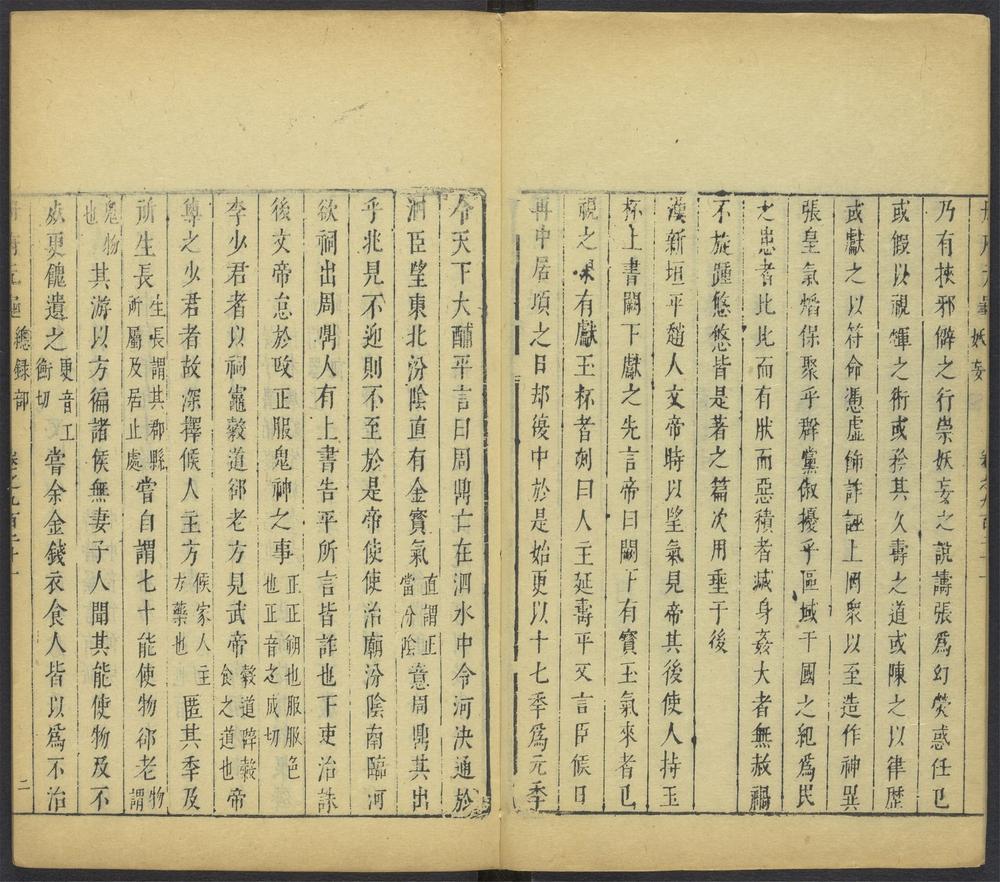 冊府元龜 妖妄 卷之九百二十二
乃有挾邪僻之行崇妖妄之說譸張為幻熒惑任已
或假以視煇之術或矜其久壽之道或陳之以律歷
或獻之以符命憑虛飾詐誣上罔衆以至造作神異
張皇氣熖保聚乎羣黨俶擾乎區域干國之紀為民
之患者比比而有狀而惡積者滅身姦大者無赦禍
不旋踵悠悠皆是著之篇次用垂于後
漢新垣平趙人文帝時以望氣見帝其後使人持玉
杯上書闕下獻之先言帝曰闕下有寶玉氣來者已
視之果有獻玉杯者刻曰人主延壽平又言臣候日
再中居頃之日却復中於是始更以十七秊為元秊
令天下大酺平言曰周鼎亡在泗水中今河决通於
泗臣望東北汾陰直有金寶氣直謂正當汾陰意周鼎其出
乎兆見不迎則不至於是帝使使治廟汾陰南臨河
欲祠出周鼎人有上書告平所言皆詐也下吏治誅
後文帝怠於改正服鬼神之事正正朔也服服色也正音之成切
李少君者以祠竈穀道卻老方見武帝穀道辟穀食之道也帝
尊之少君者故深擇候人主方候家人主方藥也匿其秊及
所生長生長謂其郡縣所屬及居止處嘗自謂七十能使物卻老物謂
鬼物也其游以方徧諸侯無妻子人聞其能使物及不
死更饋遺之更音工衡切嘗余金錢衣食人皆以為不治
冊府元龜 總録部 卷之九百二十二 二